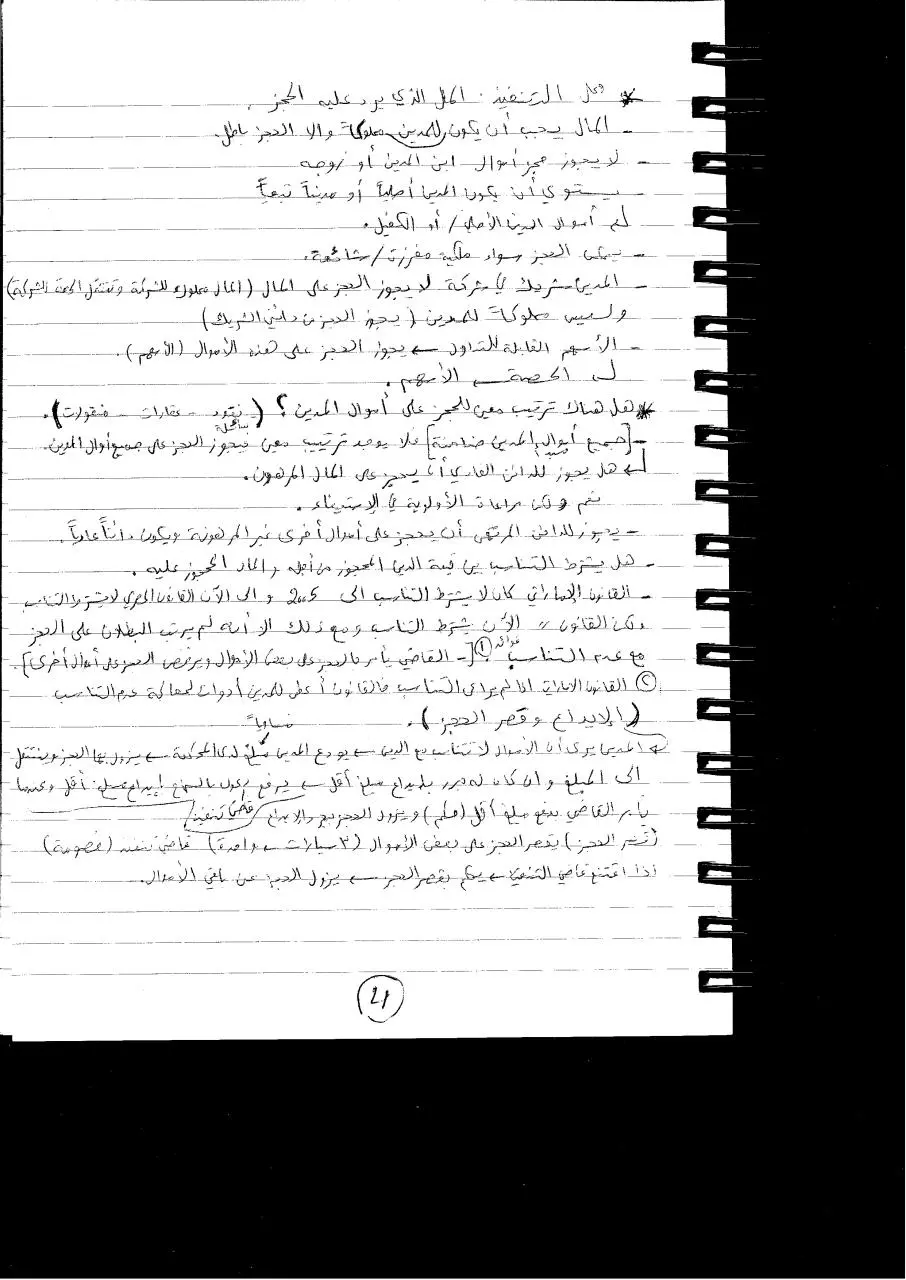 * محل التنفيذ: المال الذي يرد عليه الحجز.
- المال يجب أن يكون للمدين مملوكاً والا الحجز باطل.
- لا يجوز حجز أموال ابن المدين أو زوجه
يستوي أن يكون المدين أصلياً أو مديناً تبعياً
لم أموال المدين الأصلي / أو الكفيل.
- يمكن الحجز سواء ملكية مفرزة / شائعة.
- المدين شريك في شركة لا يجوز الحجز على المال (المال مملوك للشركة وتنتقل الحصة للشركة)
وليس مملوكاً للمدين (يجوز الحجز من دائني الشريك)
- الأسهم القابلة للتداول ← يجوز الحجز على هذه الأموال (الأسهم).
الحصة ← الأسهم.
* هل هناك ترتيب معين للحجز على أموال المدين؟ (نقود سائلة - عقارات - منقولات).
- [جميع أموال المدين ضامنة] فلا يوجد ترتيب معين فيجوز الحجز على جميع أموال المدين.
هل يجوز للدائن العادي أن يحجز على المال المرهون.
نعم ولكن مراعاة الأولوية في الاستيفاء.
- يجوز للدائن المرتهن أن يحجز على أموال أخرى غير المرهونة ويكون دائناً عادياً.
- هل يشترط التناسب بين قيمة الدين المحجوز من أجله والمال المحجوز عليه.
- القانون الإماراتي كان لا يشترط التناسب الى 2005 والى الآن القانون المصري لا يشترط التناسب
ولكن القانون // الآن يشترط التناسب ومع ذلك الا أنه لم يرتب البطلان على الحجز
مع عدم التناسب ① فوائد [- القاضي يأمر بالحجز على بعض الأموال ويرفض الحجز على أموال أخرى].
② القانون الاماراتي اذا لم يراعى التناسب فالقانون أعطى للمدين أدوات لمعالجة عدم التناسب
(الإيداع وقصر الحجز).
المدين يرى أن الأموال لا تتناسب مع الدين ← يودع المدين مبلغ مساوياً لدى المحكمة ← يزول بها الحجز وينتقل
الى المبلغ وان كان له مبرر بإيداع مبلغ أقل ← يرفع دعوى بالسماح إيداع مبلغ أقل وعندها
يأمر القاضي بدفع مبلغ أقل ويزول الحجز بمجرد الإيداع / قاضي تنفيذ
(قصر الحجز) يقصر الحجز على بعض الأموال (٣ سيارات ← واحدة) قاضي تنفيذ (خصومة)
اذا اقتنع قاضي التنفيذ ← يحكم بقصر الحجز ← يزول الحجز عن باقي الأموال.
21